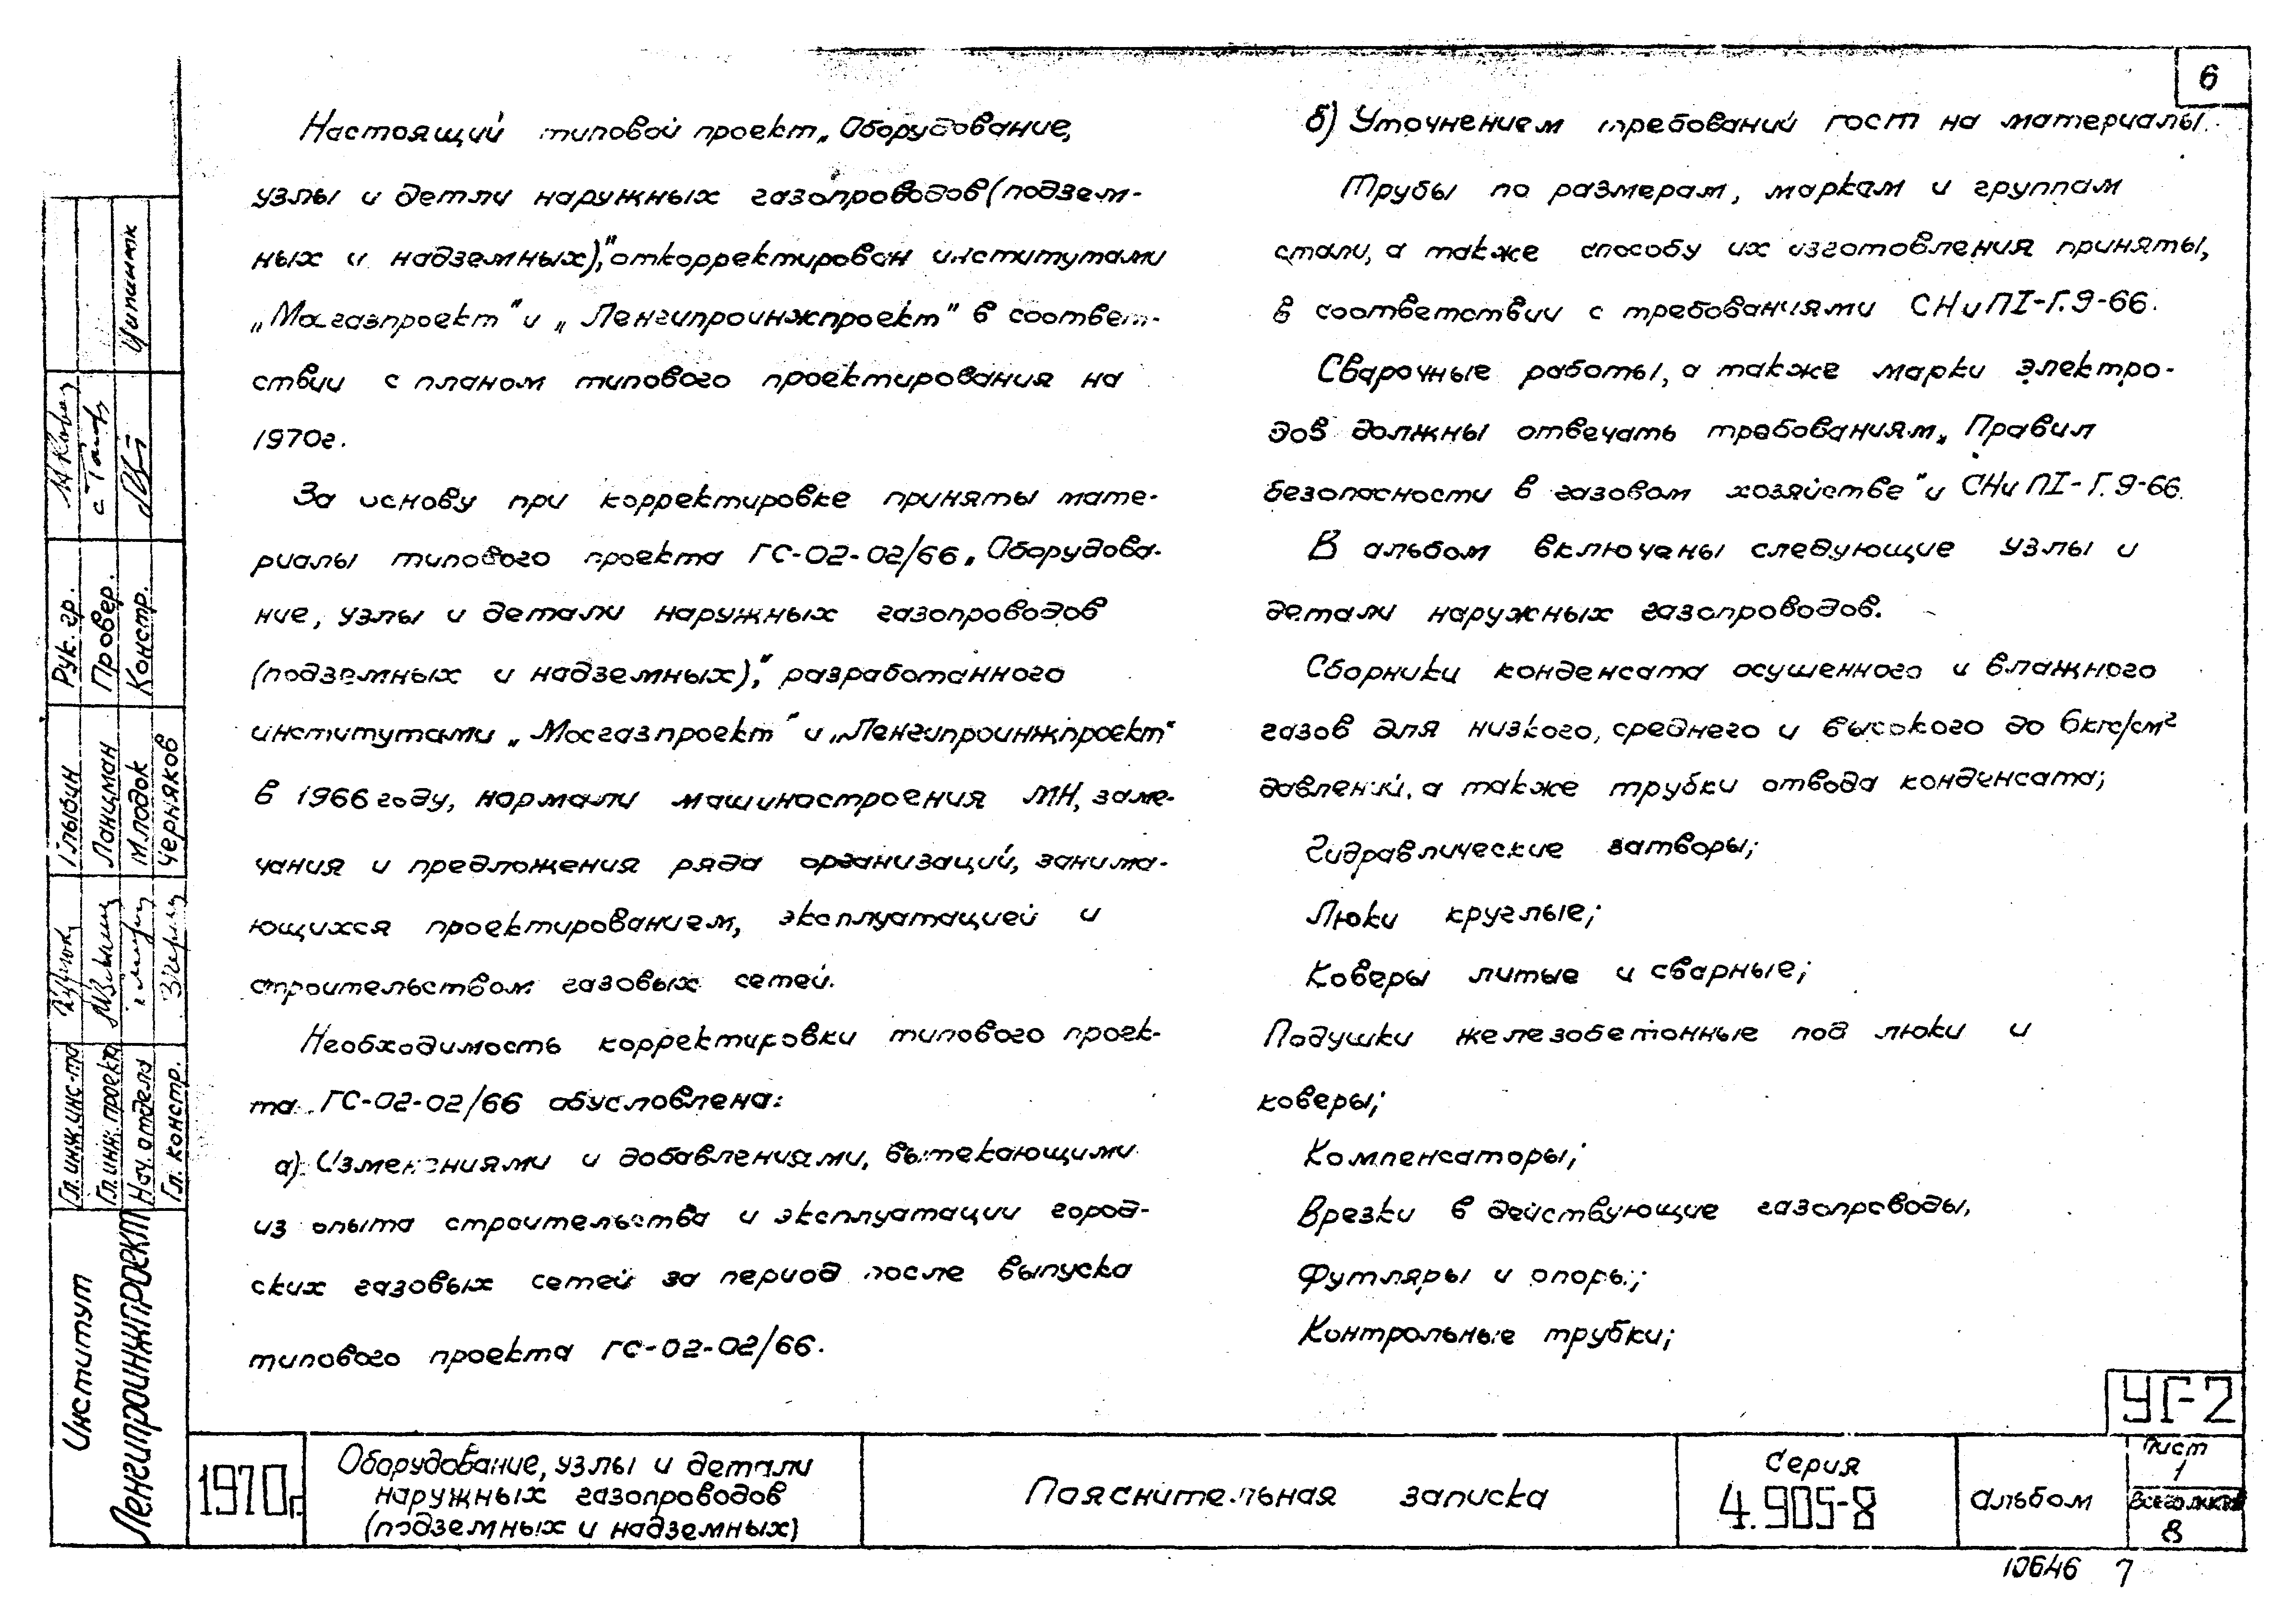 6
Настоящий типовой проект „Оборудование,
узлы и детли наружных газопроводов (подзем-
ных и надземных)", откорректирован институтами
„Мосгазпроект" и „Ленгипроинжпроект" в соответ-
ствии с планом типового проектирования на
1970г.
За основу при корректировке приняты мате-
риалы типового проекта ГС-02-02/66 „Оборудова-
ние, узлы и детали наружных газопроводов
(подземных и надземных)", разработанного
институтами „Мосгазпроект" и „Ленгипроинжпроект"
в 1966 году, нормали машиностроения МН, заме-
чания и предложения ряда организаций, занима-
ющихся проектированием, эксплуатацией и
строительством газовых сетей.
Необходимость корректировки типового проек-
та ГС-02-02/66 обусловлена:
а) Изменениями и добавлениями, вытекающими
из опыта строительства и эксплуатации город-
ских газовых сетей за период после выпуска
типового проекта ГС-02-02/66.
б) Уточнением требований гост на материалы.
Трубы по размерам, маркам и группам
стали, а также способу их изготовления приняты,
в соответствии с требованиями СНиПI-Г.9-66.
Сварочные работы, а также марки электро-
дов должны отвечать требованиям „Правил
безопасности в газовом хозяйстве" и СНиПI-Г.9-66.
В альбом включены следующие узлы и
детали наружных газопроводов.
Сборники конденсата осушенного и влажного
газов для низкого, среднего и высокого до 6кгс/см²
давлений, а также трубки отвода конденсата;
Гидравлические затворы;
Люки круглые;
Коверы литые и сварные;
Подушки железобетонные под люки и
коверы;
Компенсаторы;
Врезки в действующие газопроводы,
Футляры и опоры;
Контрольные трубки;
УГ-2
1970г.
Оборудование, узлы и детали
наружных газопроводов
(подземных и надземных)
Пояснительная записка
Серия
4.905-8
Альбом
Лист
1
Всего листов
8
10646 7
Институт
Ленгипроинжпроект
Гл. инж. инс-та
Гл. инж. проекта
Нач. отдела
Гл. констр.
Ланцман
Младок
Черняков
Рук. гр.
Провер.
Констр.